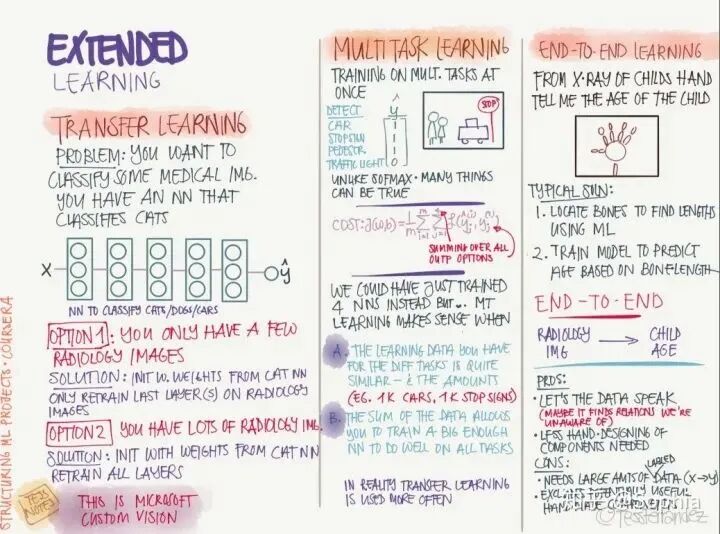 EXTENDED
LEARNING
TRANSFER LEARNING
PROBLEM: YOU WANT TO
CLASSIFY SOME MEDICAL IMG.
YOU HAVE AN NN THAT
CLASSIFIES CATS
X ŷ
NN TO CLASSIFY CATS/DOGS/CARS
OPTION 1: YOU ONLY HAVE A FEW
RADIOLOGY IMAGES
SOLUTION: INIT W. WEIGHTS FROM CAT NN
ONLY RETRAIN LAST LAYER(S) ON RADIOLOGY
IMAGES
OPTION 2 YOU HAVE LOTS OF RADIOLOGY IMG.
SOLUTION: INIT WITH WEIGHTS FROM CAT NN
RETRAIN ALL LAYERS
TESS
NOTE
THIS IS MICROSOFT
CUSTOM VISION
STRUCTURING ML PROJECTS · COURSERA
MULTI TASK LEARNING
TRAINING ON MULT. TASKS AT
ONCE
DETECT ŷ
CAR
STOPSIGN
PEDESTR.
TRAFFIC LIGHT 0
STOP
UNLIKE SOFMAX · MANY THINGS
CAN BE TRUE
COST:
SUMMING OVER ALL
OUTP OPTIONS
WE COULD HAVE JUST TRAINED
4 NNS INSTEAD BUT... MT
LEARNING MAKES SENSE WHEN
A. THE LEARNING DATA YOU HAVE
FOR THE DIFF TASKS IS QUITE
SIMILAR - & THE AMOUNTS
(EG. 1K CARS, 1K STOP SIGNS)
B. THE SUM OF THE DATA ALLOWS
YOU TO TRAIN A BIG ENOUGH
NN TO DO WELL ON ALL TASKS
IN REALITY TRANSFER LEARNING
IS USED MORE OFTEN
END-TO-END LEARNING
FROM X-RAY OF CHILDS HAND
TELL ME THE AGE OF THE CHILD
TYPICAL SOLN:
1. LOCATE BONES TO FIND LENGTHS
USING ML
2. TRAIN MODEL TO PREDICT
AGE BASED ON BONELENGTH
END-TO-END
RADIOLOGY → CHILD
IMG AGE
PROS:
• LET'S THE DATA SPEAK
(MAYBE IT FINDS RELATIONS WE'RE
UNAWARE OF)
• LESS HAND-DESIGNING OF
COMPONENTS NEEDED
CONS:
• NEEDS LARGE AMTS OF LABLED DATA (X→Y)
• EXCLUDES POTENTIALLY USEFUL
HAND-MADE COMPONENTS
©TessFerrandez